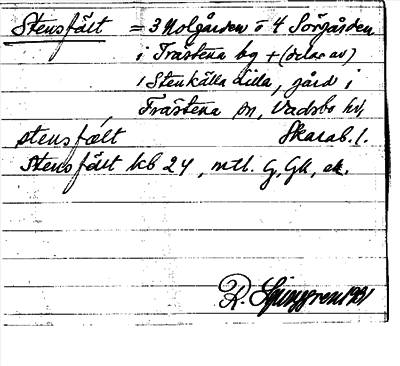 Stensfält = 3 Nolgården o 4 Sörgården
i Trästena by + (delar av)
1 Stenkälla Lilla, gård i
Trästena sn, Vadsbo hd,
stensfælt Skarab. l.
Stensfält kb 24, mtl. G, Gh, ek.
R. Ljunggren 1931